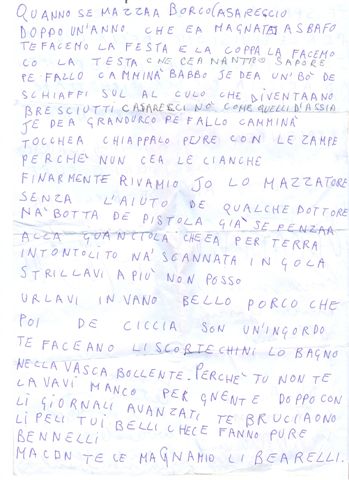 QUANNO SE MAZZAA BORCO CASARECCIO
DOPPO UN'ANNO CHE EA MAGNATA ASBAFO
TE FACEMO LA FESTA E LA COPPA LA FACEMO
CO LA TESTA CHE CEA N'ANTRO SAPORE
PE FALLO CAMMINÀ BABBO JE DEA UN'BÒ DE
SCHIAFFI SUL AL CULO CHE DIVENTAANO
BRESCIUTTI CASARECCI NO COME QUELLI D'ASSIA
JE DEA GRANDURCO PE FALLO CAMMINÀ
TOCCHEA CHIAPPALO PEURE CON LE ZAMPE
PERCHÈ NUN CEA LE CIANCHE
FINARMENTE RIVAMIO JO LO MAZZATORE
SENZA L'AIUTO DE QUALCHE DOTTORE
NA'BOTTA DE PISTOLA GIÀ SE PENZAA
ALLA GUANCIOLA CHEEA PER TERRA
INTONTOLITO NA'SCANNATA IN GOLA
STRILLAVI A PIÙ NON POSSO
URLAVI IN VANO BELLO PORCO CHE
POI DE CICCIA SON UN'INGORDO
TE FACEANO LI SCORTECHINI LO BAGNO
NELLA VASCA BOLLENTE. PERCHÈ TU NON TE
LAVAVI MANCO PER GNENTE DOPPO CON
LI GIORNALI AVANZATI TE BRUCIAONO
LI PELI TUI BELLI CHECE FANNO PURE
BENNELLI
MACON TE CE MAGNAMIO LI BEARELLI.